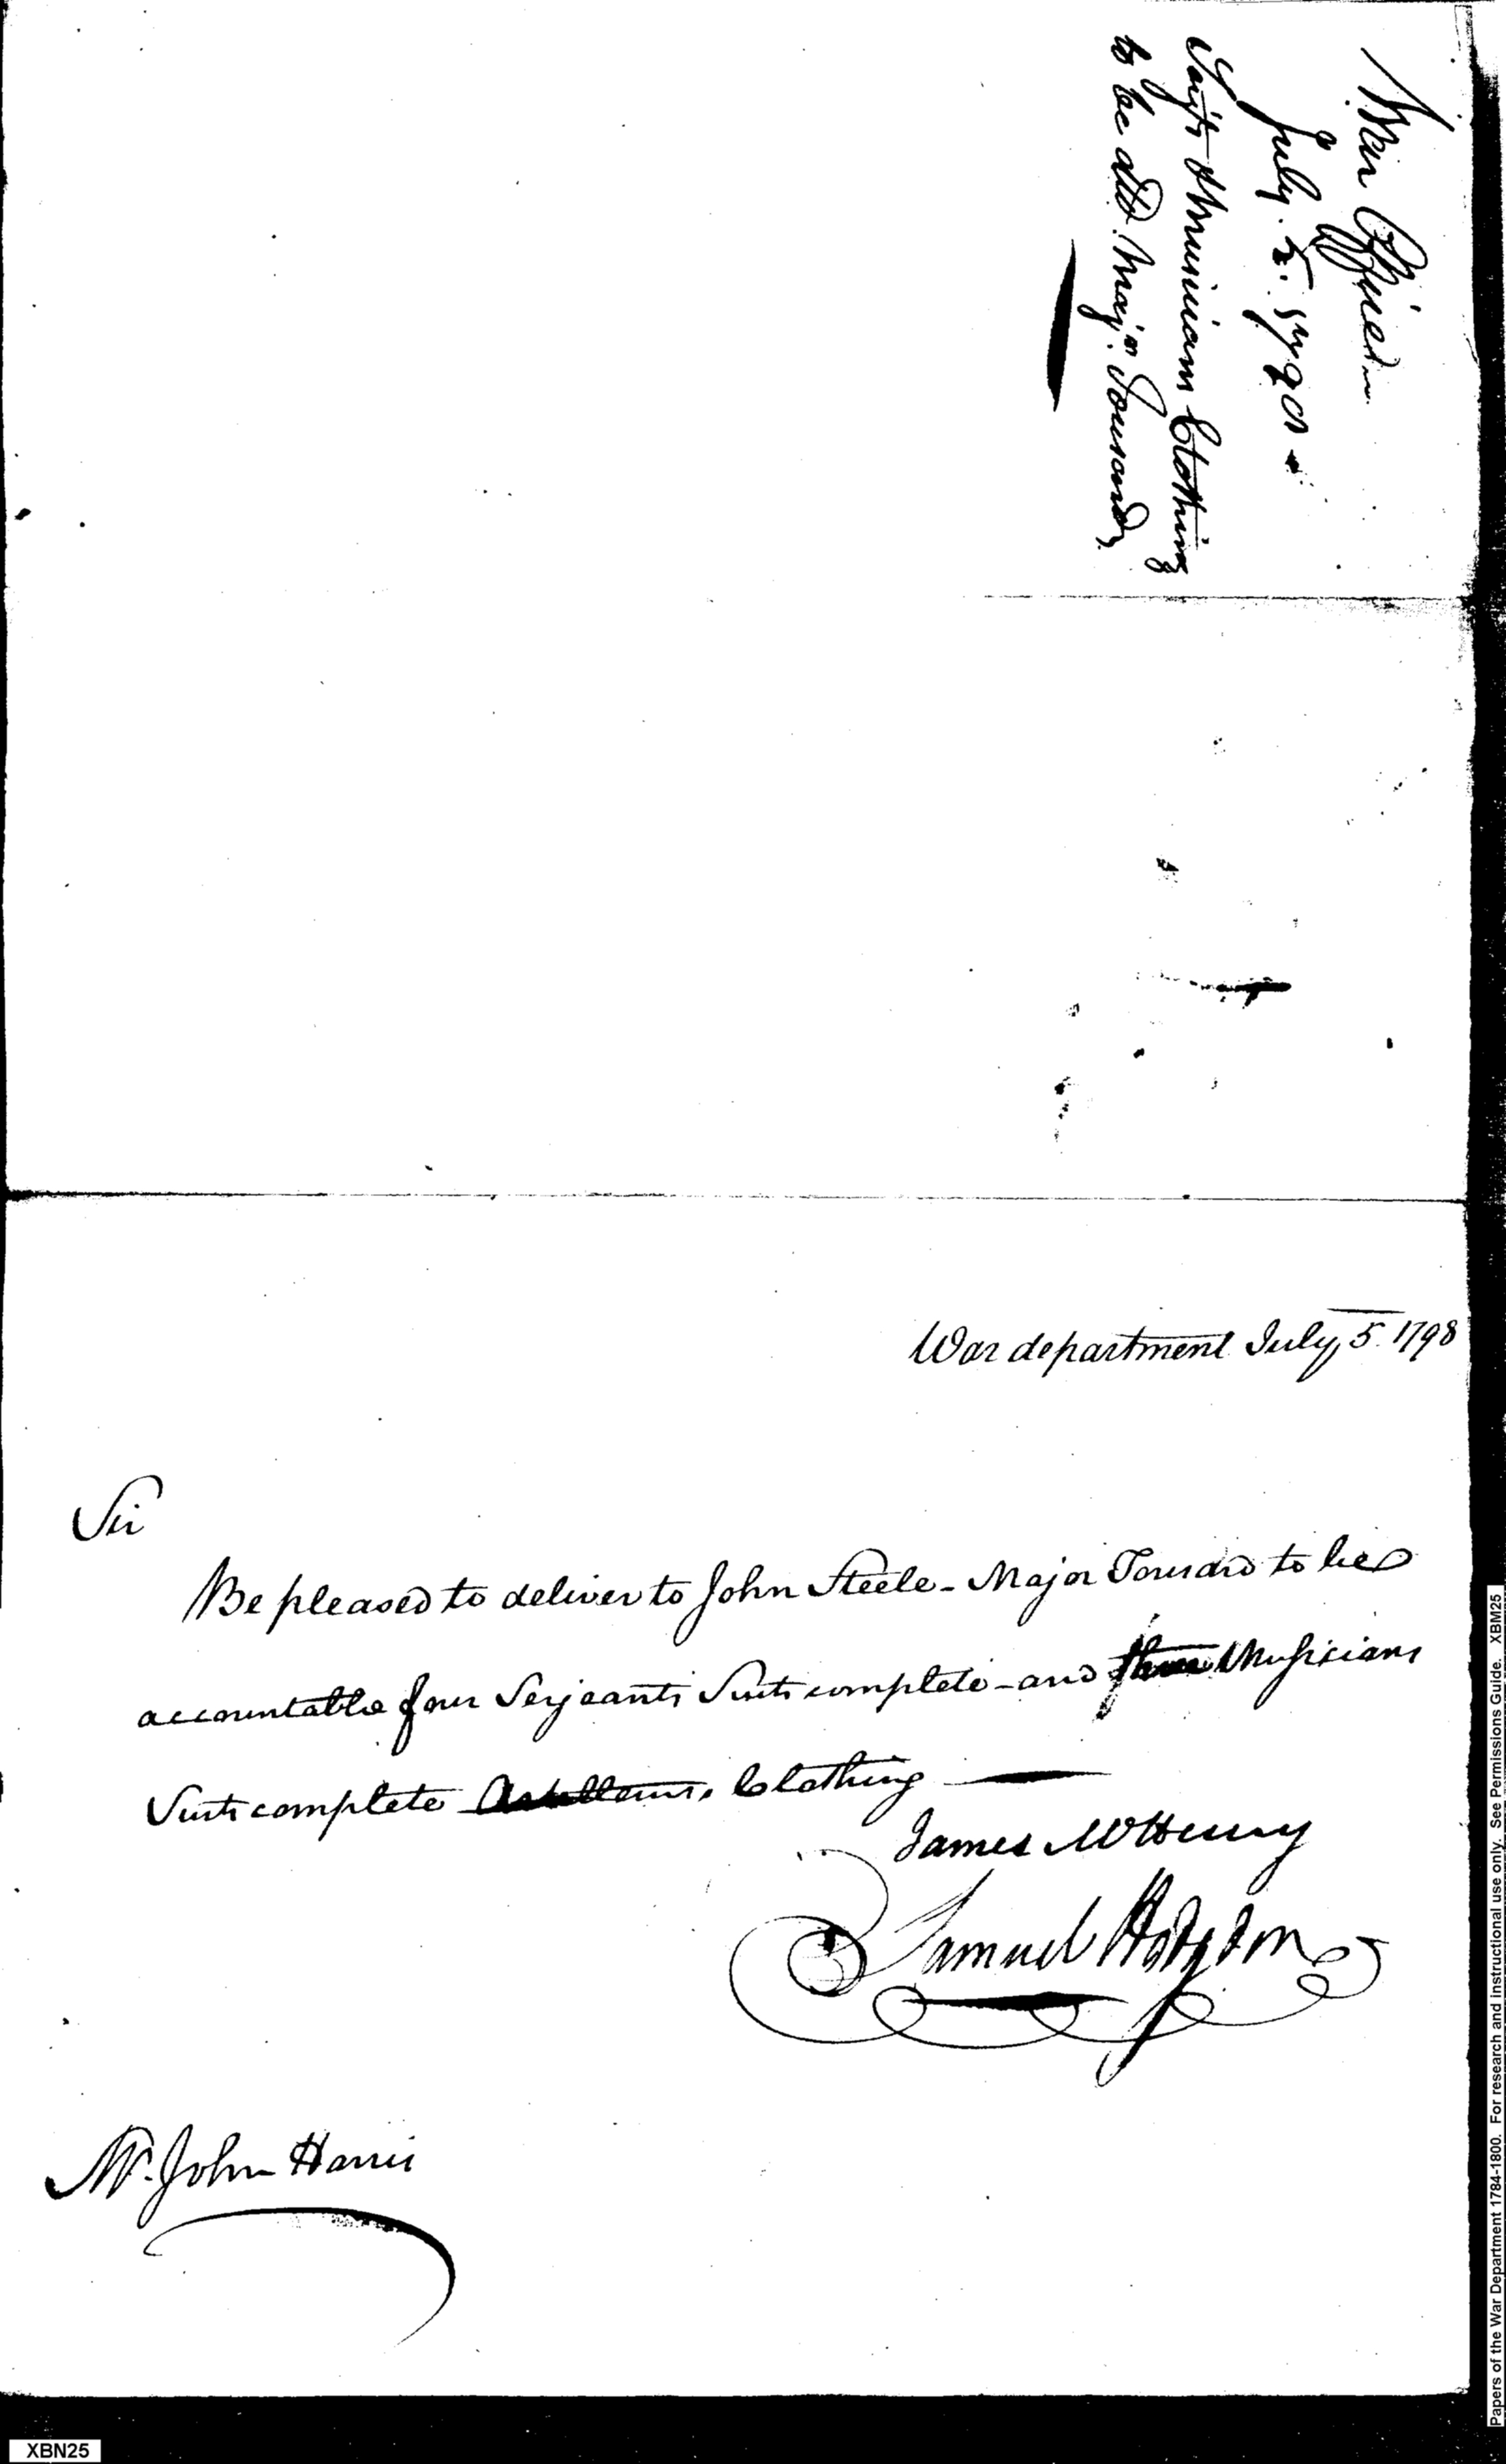 War Office
July 5. 1798
Serjts & Musicians Clothing
to be accd. Major. Tousard
War department July 5. 1798
Sir
Be pleased to deliver to John Steele - Major Tousard to be
accountable four Serjeants Suits complete - and Musicians
Suits complete Artillerists. Clothing
James McHenry
Samuel Hodgdon
Mr. John Harris
Papers of the War Department 1784-1800. For research and instructional use only. See Permissions Guide. XBM25
XBN25